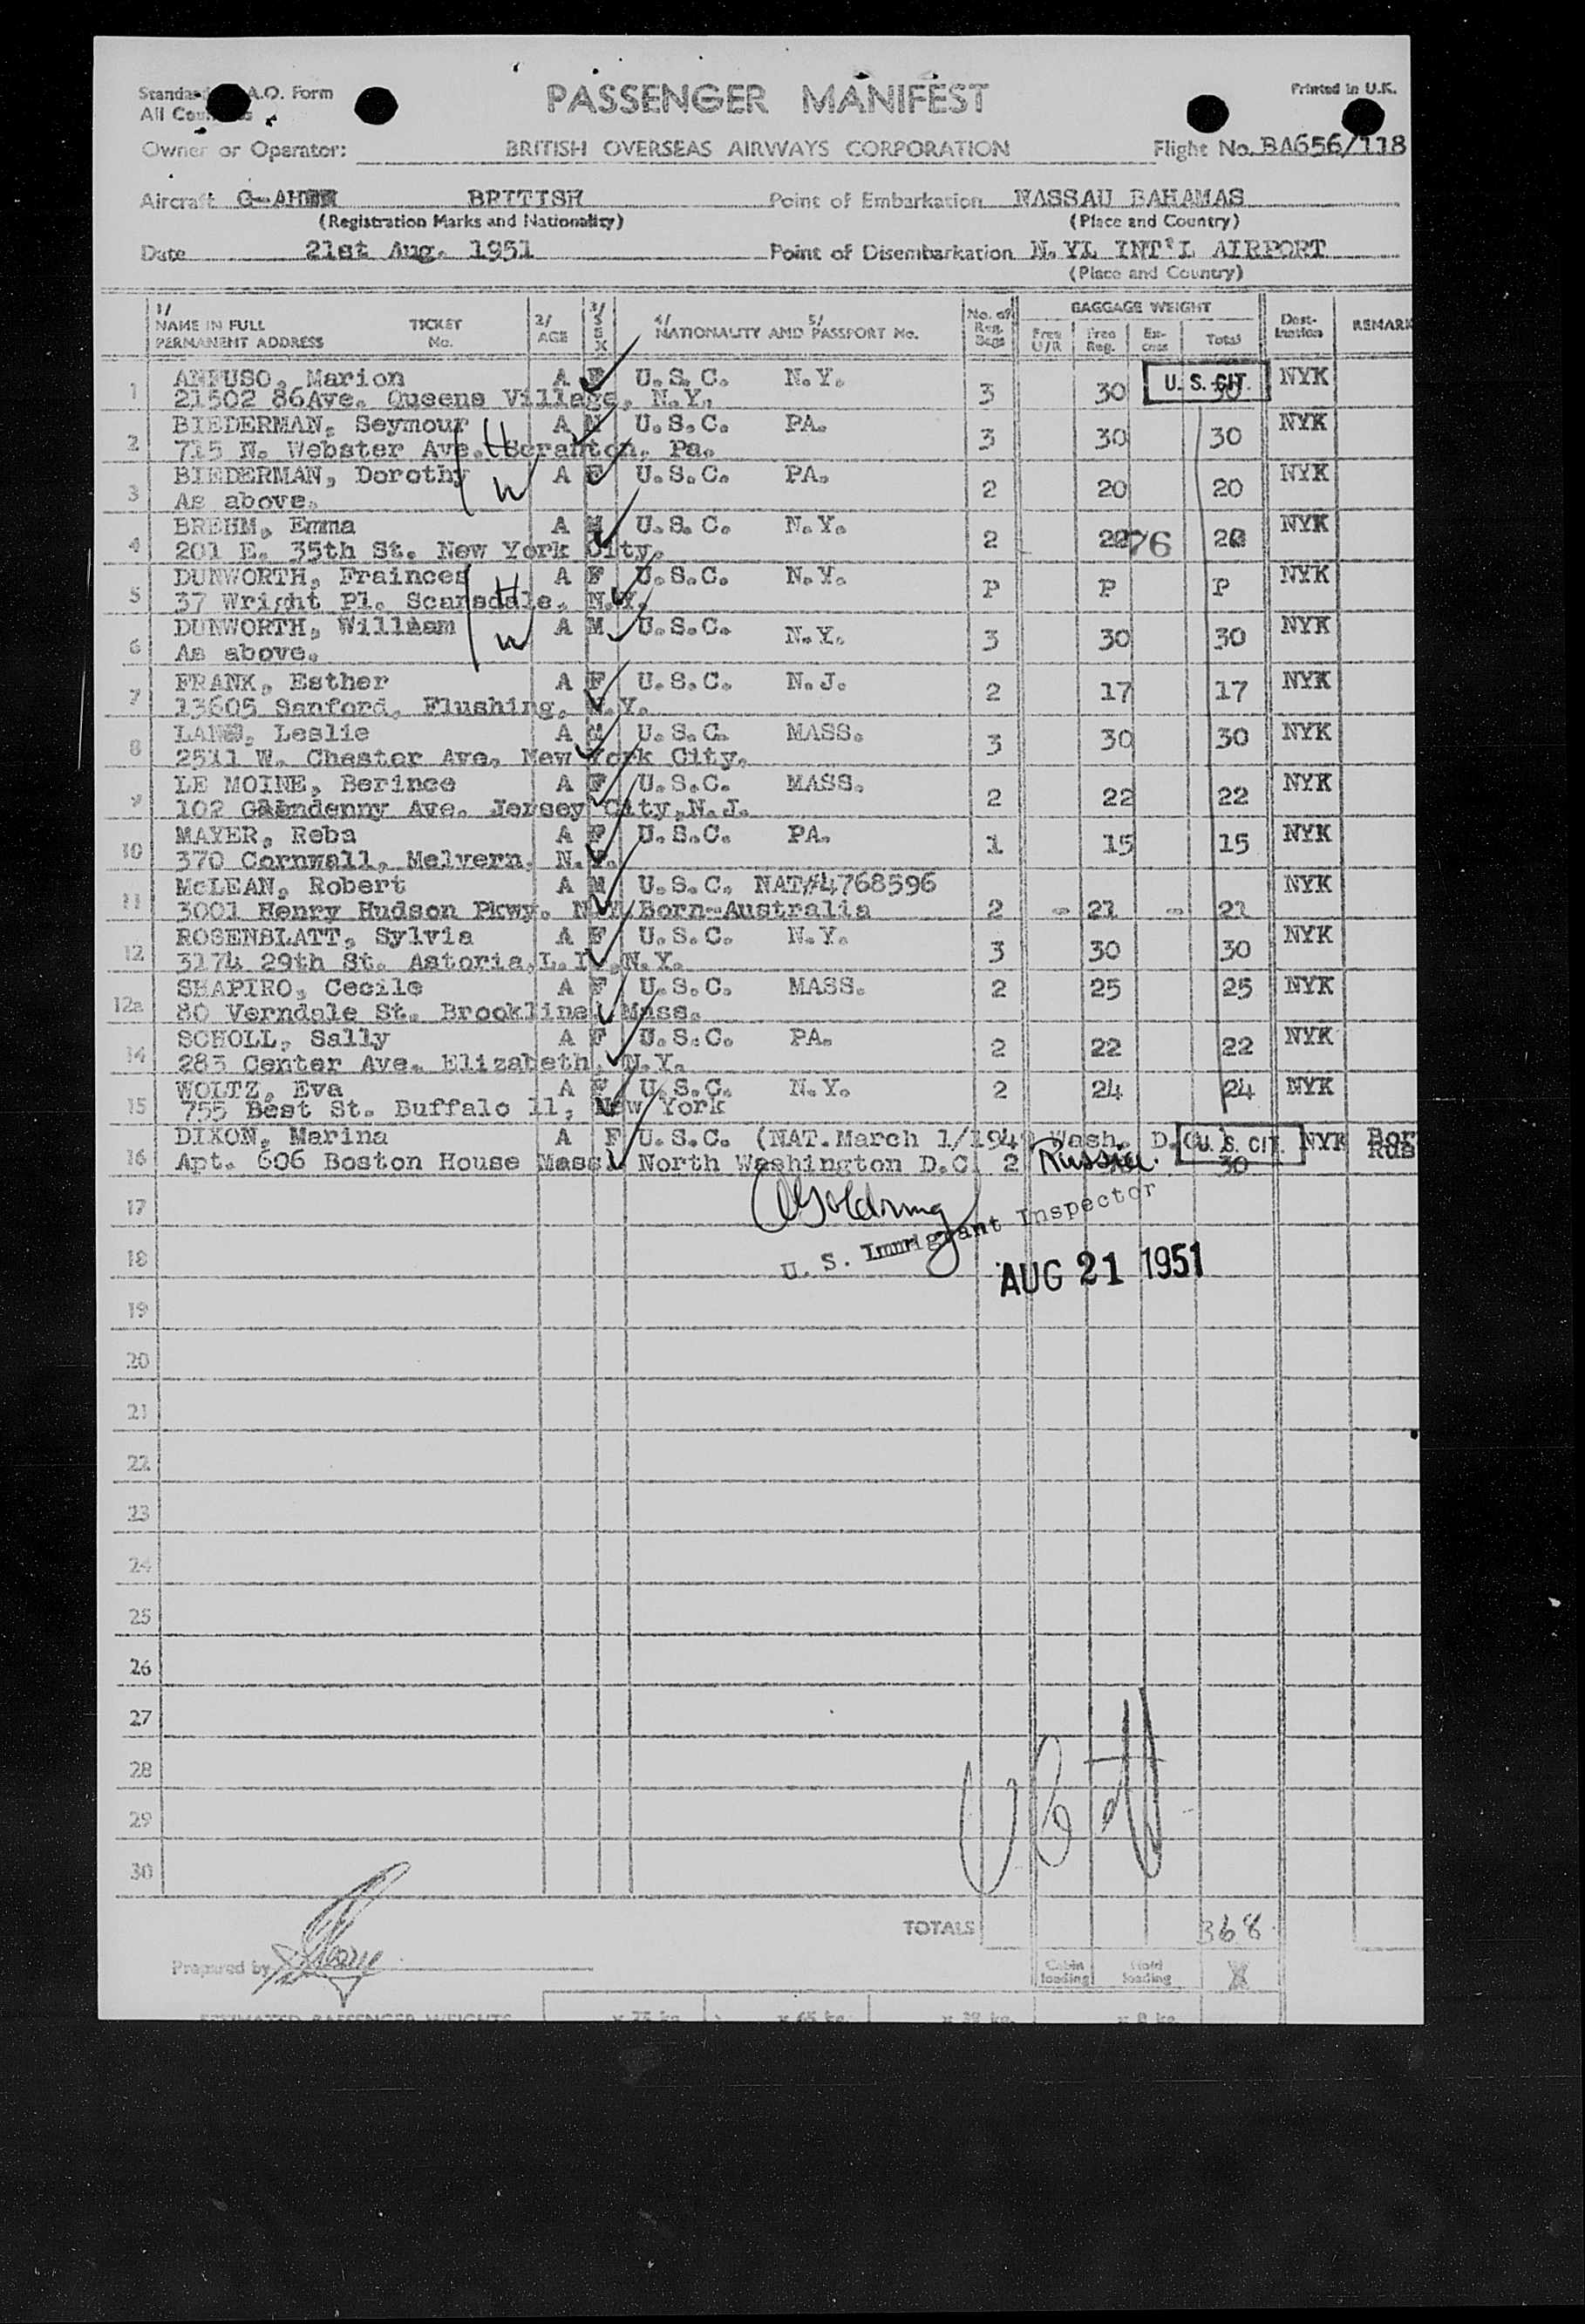 PASSENGER MANIFEST
A.O. Form
All
Printed in U.K.
Owner or Operator: BRITISH OVERSEAS AIRWAYS CORPORATION Flight No. BA656/118
Aircraft G-AH BRITISH Point of Embarkation NASSAU BAHAMAS
(Registration Marks and Nationality) (Place and Country)
Date 21st Aug. 1951 Point of Disembarkation N.YL INT'L AIRPORT
(Place and Country)
1/ NAME IN FULL PERMANENT ADDRESS TICKET No. 2/ AGE 3/ SEX 4/ NATIONALITY AND 5/ PASSPORT No. No. of Reg. Bags BAGGAGE WEIGHT Free U/R Free Reg. Excess Total Destination REMARK
1 ANFUSO, Marion A F U.S.C. N.Y. 3 30 30 U. S. CIT. NYK
21502 86Ave. Queens Village, N.Y.
2 BIEDERMAN, Seymour A M U.S.C. PA. 3 30 30 NYK
715 N. Webster Ave. Scranton, Pa. H
3 BIEDERMAN, Dorothy A F U.S.C. PA. 2 20 20 NYK
As above. W
4 BREHM, Emma A U.S.C. N.Y. 2 76 NYK
201 E. 35th St. New York City.
5 DUNWORTH, Frainces A F U.S.C. N.Y. P P P NYK
37 Wright Pl. Scarsdale, N.Y. H
6 DUNWORTH, William A M U.S.C. N.Y. 3 30 30 NYK
As above. W
7 FRANK, Esther A F U.S.C. N.J. 2 17 17 NYK
13605 Sanford, Flushing, N.Y.
8 Leslie A M U.S.C. MASS. 3 30 30 NYK
2511 W. Chester Ave. New York City.
9 LE MOINE, Berince A F U.S.C. MASS. 2 22 22 NYK
102 Ave. Jersey City,N.J.
10 MAYER, Reba A F U.S.C. PA. 1 15 15 NYK
370 Cornwall, Melvern, N.Y.
11 McLEAN, Robert A M U.S.C. NAT#4768596 NYK
3001 Henry Hudson Pkwy. N.Y. Born-Australia 2 - 21 - 21
12 ROSENBLATT, Sylvia A F U.S.C. N.Y. 3 30 30 NYK
3174 29th St. Astoria,L.I.,N.Y.
12a SHAPIRO, Cecile A F U.S.C. MASS. 2 25 25 NYK
80 Verndale St. Brookline, Mass.
14 SCHOLL, Sally A F U.S.C. PA. 2 22 22 NYK
283 Center Ave. Elizabeth, N.Y.
15 WOLTZ, Eva A F U.S.C. N.Y. 2 24 24 NYK
755 Best St. Buffalo 11, New York
16 DIXON, Marina A F U.S.C. (NAT.March 1/1949 Wash. D.C.) U. S. CIT. NYK Bor
Apt. 606 Boston House Mass. North Washington D.C. 2 Russia. 30 Rus
17
U. S. Immigrant Inspector
18
AUG 21 1951
19
20
21
22
23
24
25
26
27
28
29
30
TOTALS 368
Prepared by
Cabin loading Hold loading
ESTIMATED PASSENGER WEIGHTS x 75 kg. x 65 kg. x 8 kg.